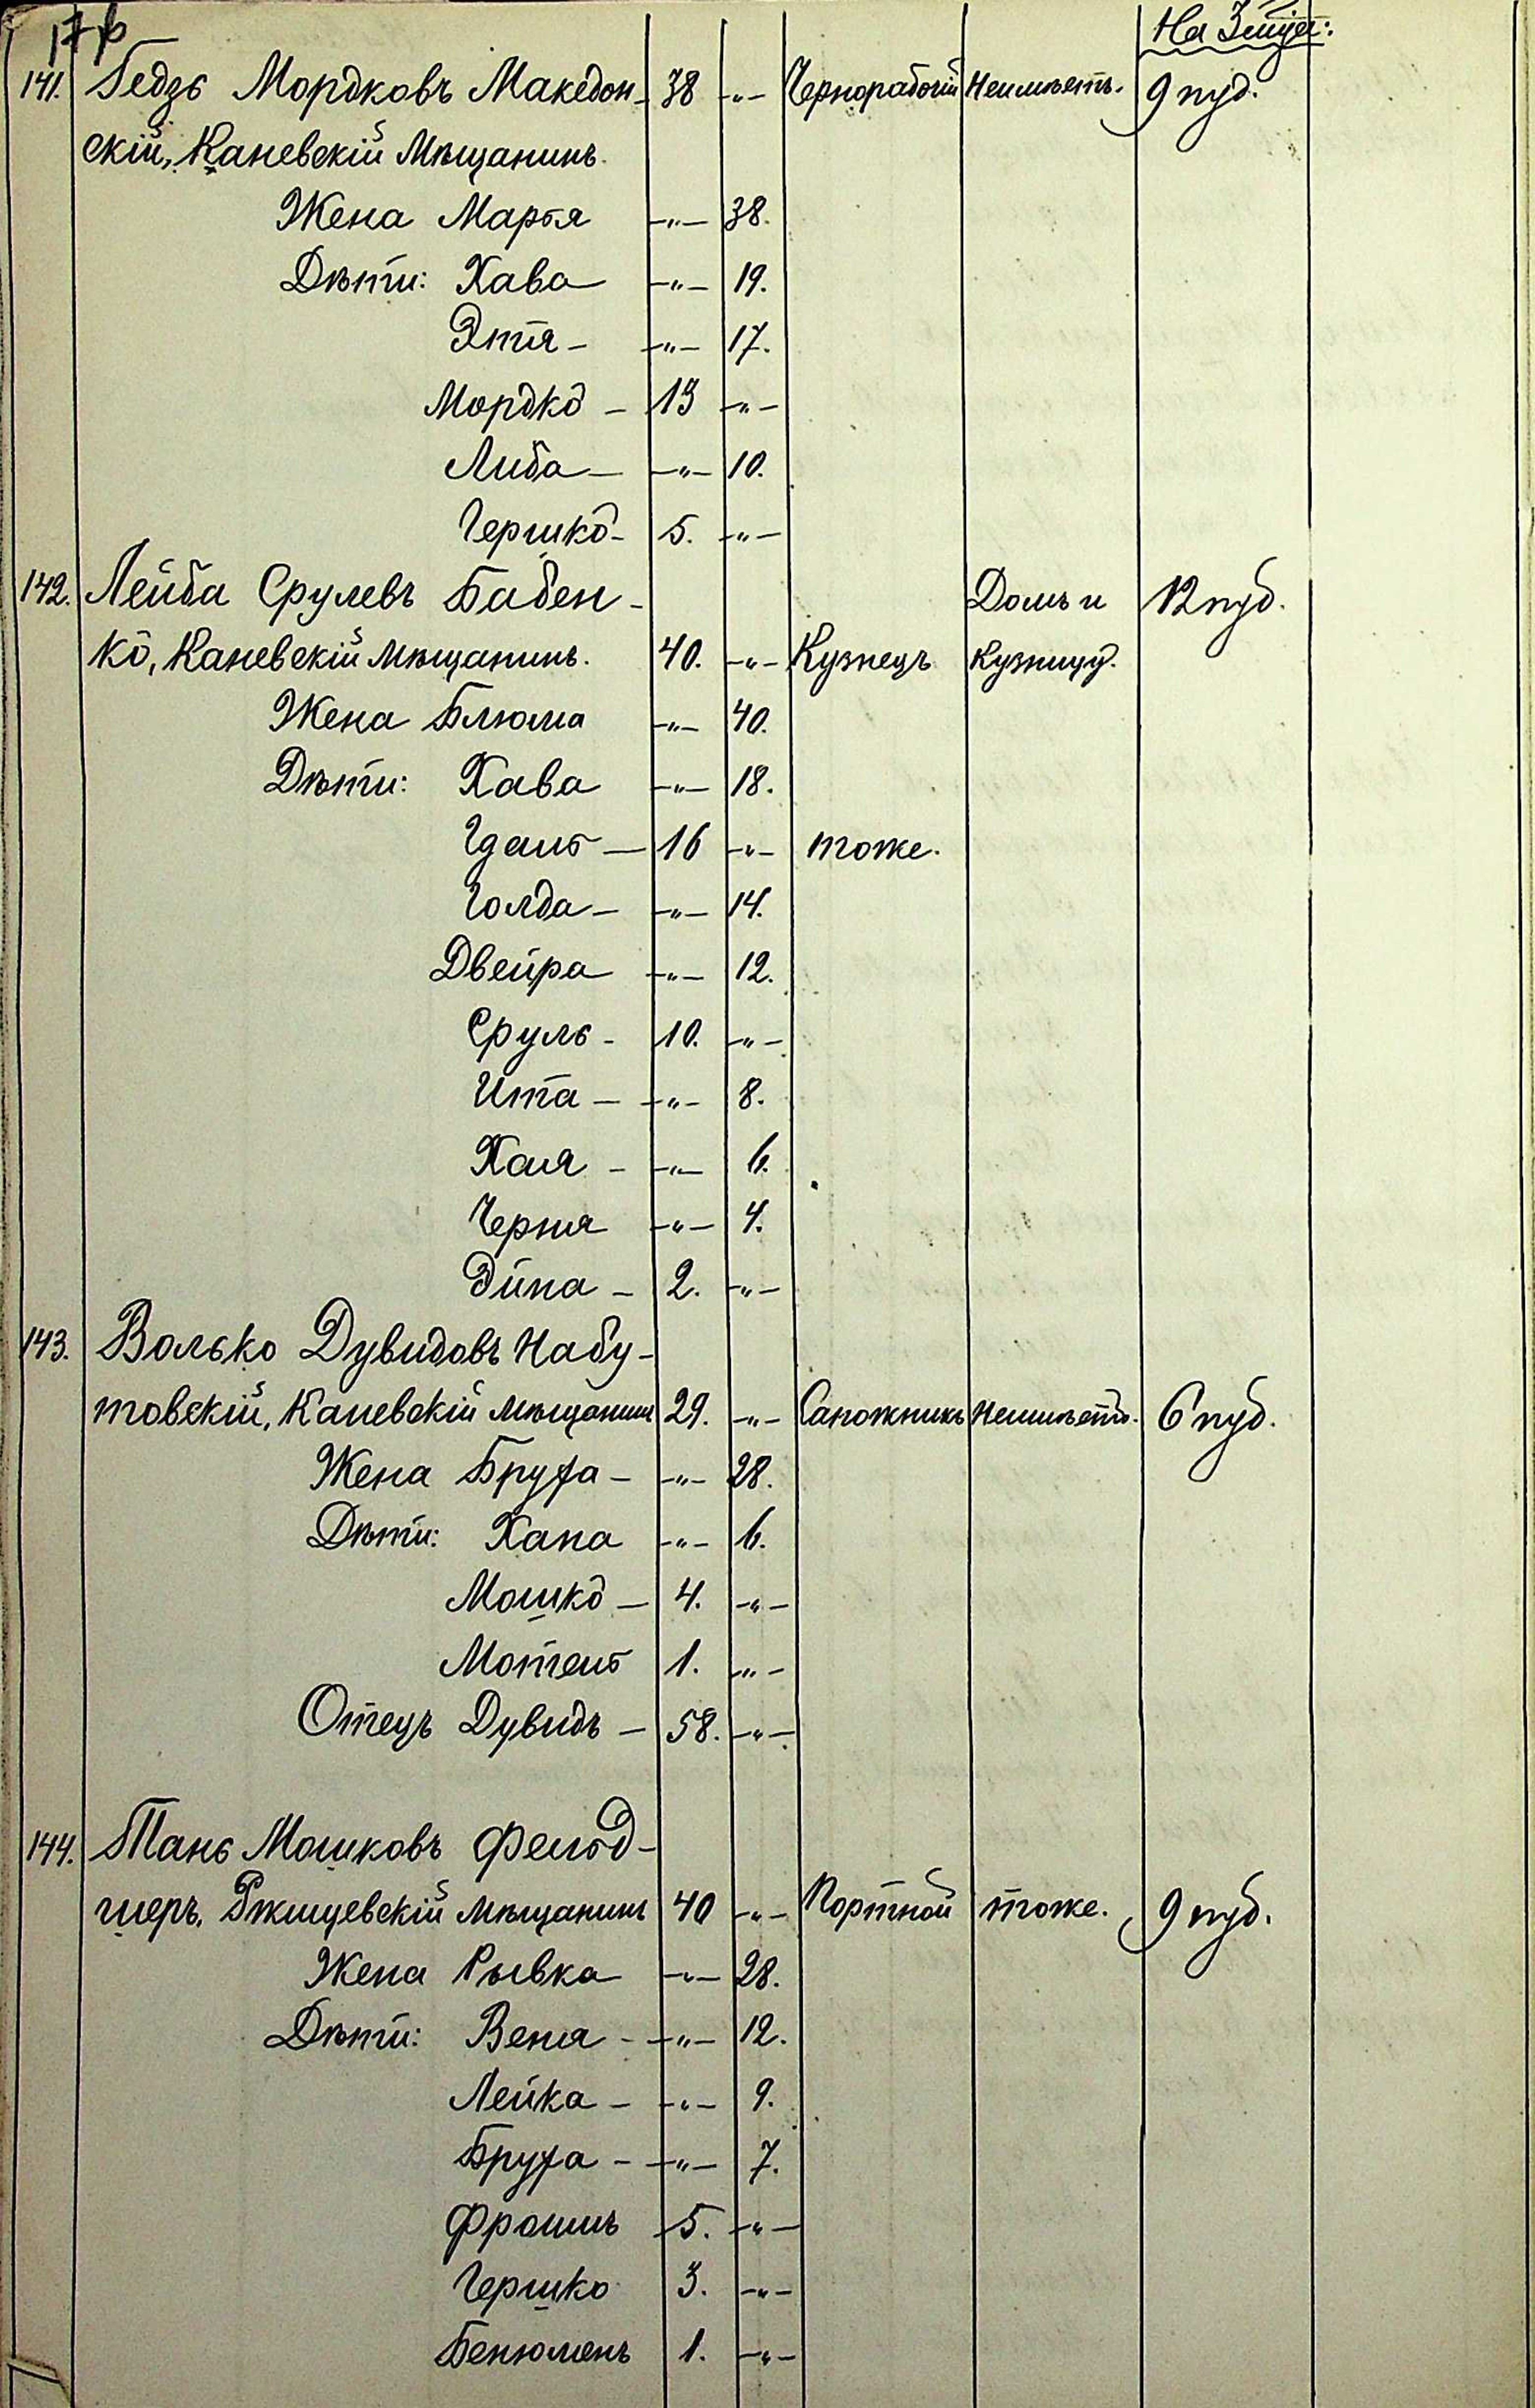 176
На Зиму:
141. Гедзь Мордковъ Македон- 38 -"- Чернорабочій Неимѣетъ. 9 пуд.
скій, Каневскій Мѣщанинъ.
Жена Марья -"- 38.
Дѣти: Хава -"- 19.
Этя - -"- 17.
Мордко - 13 -"-
Либа - -"- 10.
Гершко - 5. -"-
142. Лейба Срулевъ Бабен- Домъ и 12 пуд.
ко, Каневскій мѣщанинъ. 40. -"- Кузнецъ Кузницу.
Жена Блюма -"- 40.
Дѣти: Хава -"- 18.
Гдаль - 16 -"- тоже.
Голда - -"- 14.
Двейра -"- 12.
Сруль - 10. -"-
Ита - -"- 8.
Хая - -"- 6.
Черня -"- 4.
Эйна - 2. -"-
143. Волько Дувидовъ Набу-
товскій, Каневскій мѣщанинъ 29. -"- Сапожникъ Неимѣетъ. 6 пуд.
Жена Бруха - -"- 28.
Дѣти: Хана -"- 6.
Мошко - 4. -"-
Мотель 1. -"-
Отецъ Дувидъ - 58. -"-
144. Танс Мошковъ Фельд-
шеръ, Ржищевскій мѣщанинъ 40 -"- Портной тоже. 9 пуд.
Жена Рывка -"- 28.
Дѣти: Веня - -"- 12.
Лейка - -"- 9.
Бруха - -"- 7.
Фроимъ 5. -"-
Гершко 3. -"-
Бенюменъ 1. -"-